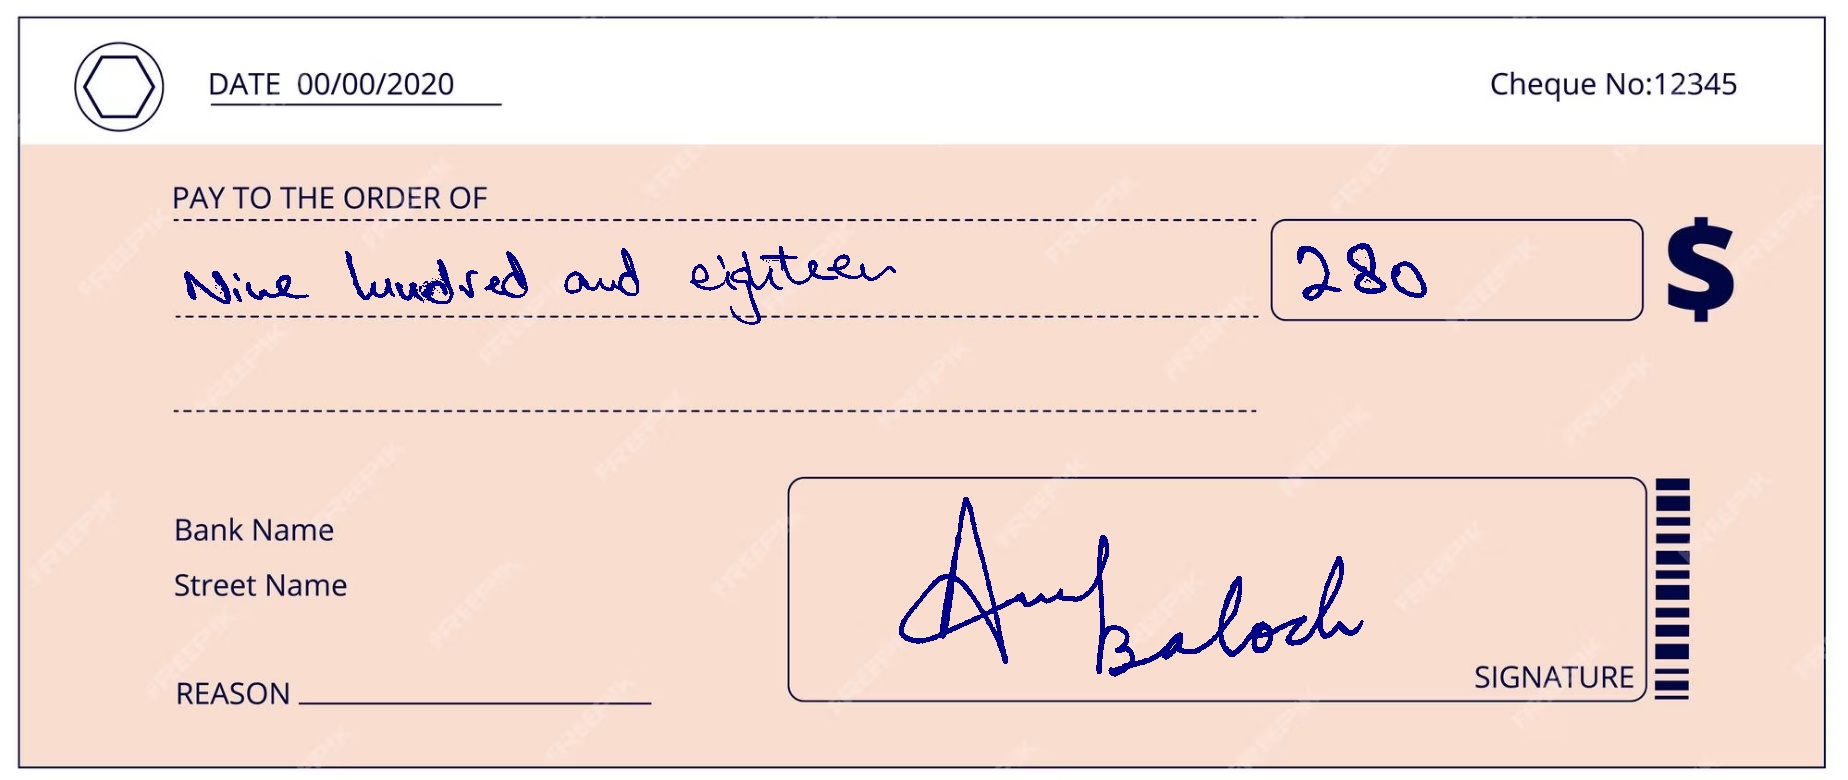 DATE 00/00/2020
Cheque No:12345
PAY TO THE ORDER OF
Nine hundred and eighteen
280
$
Bank Name
Street Name
Baloch
REASON
SIGNATURE